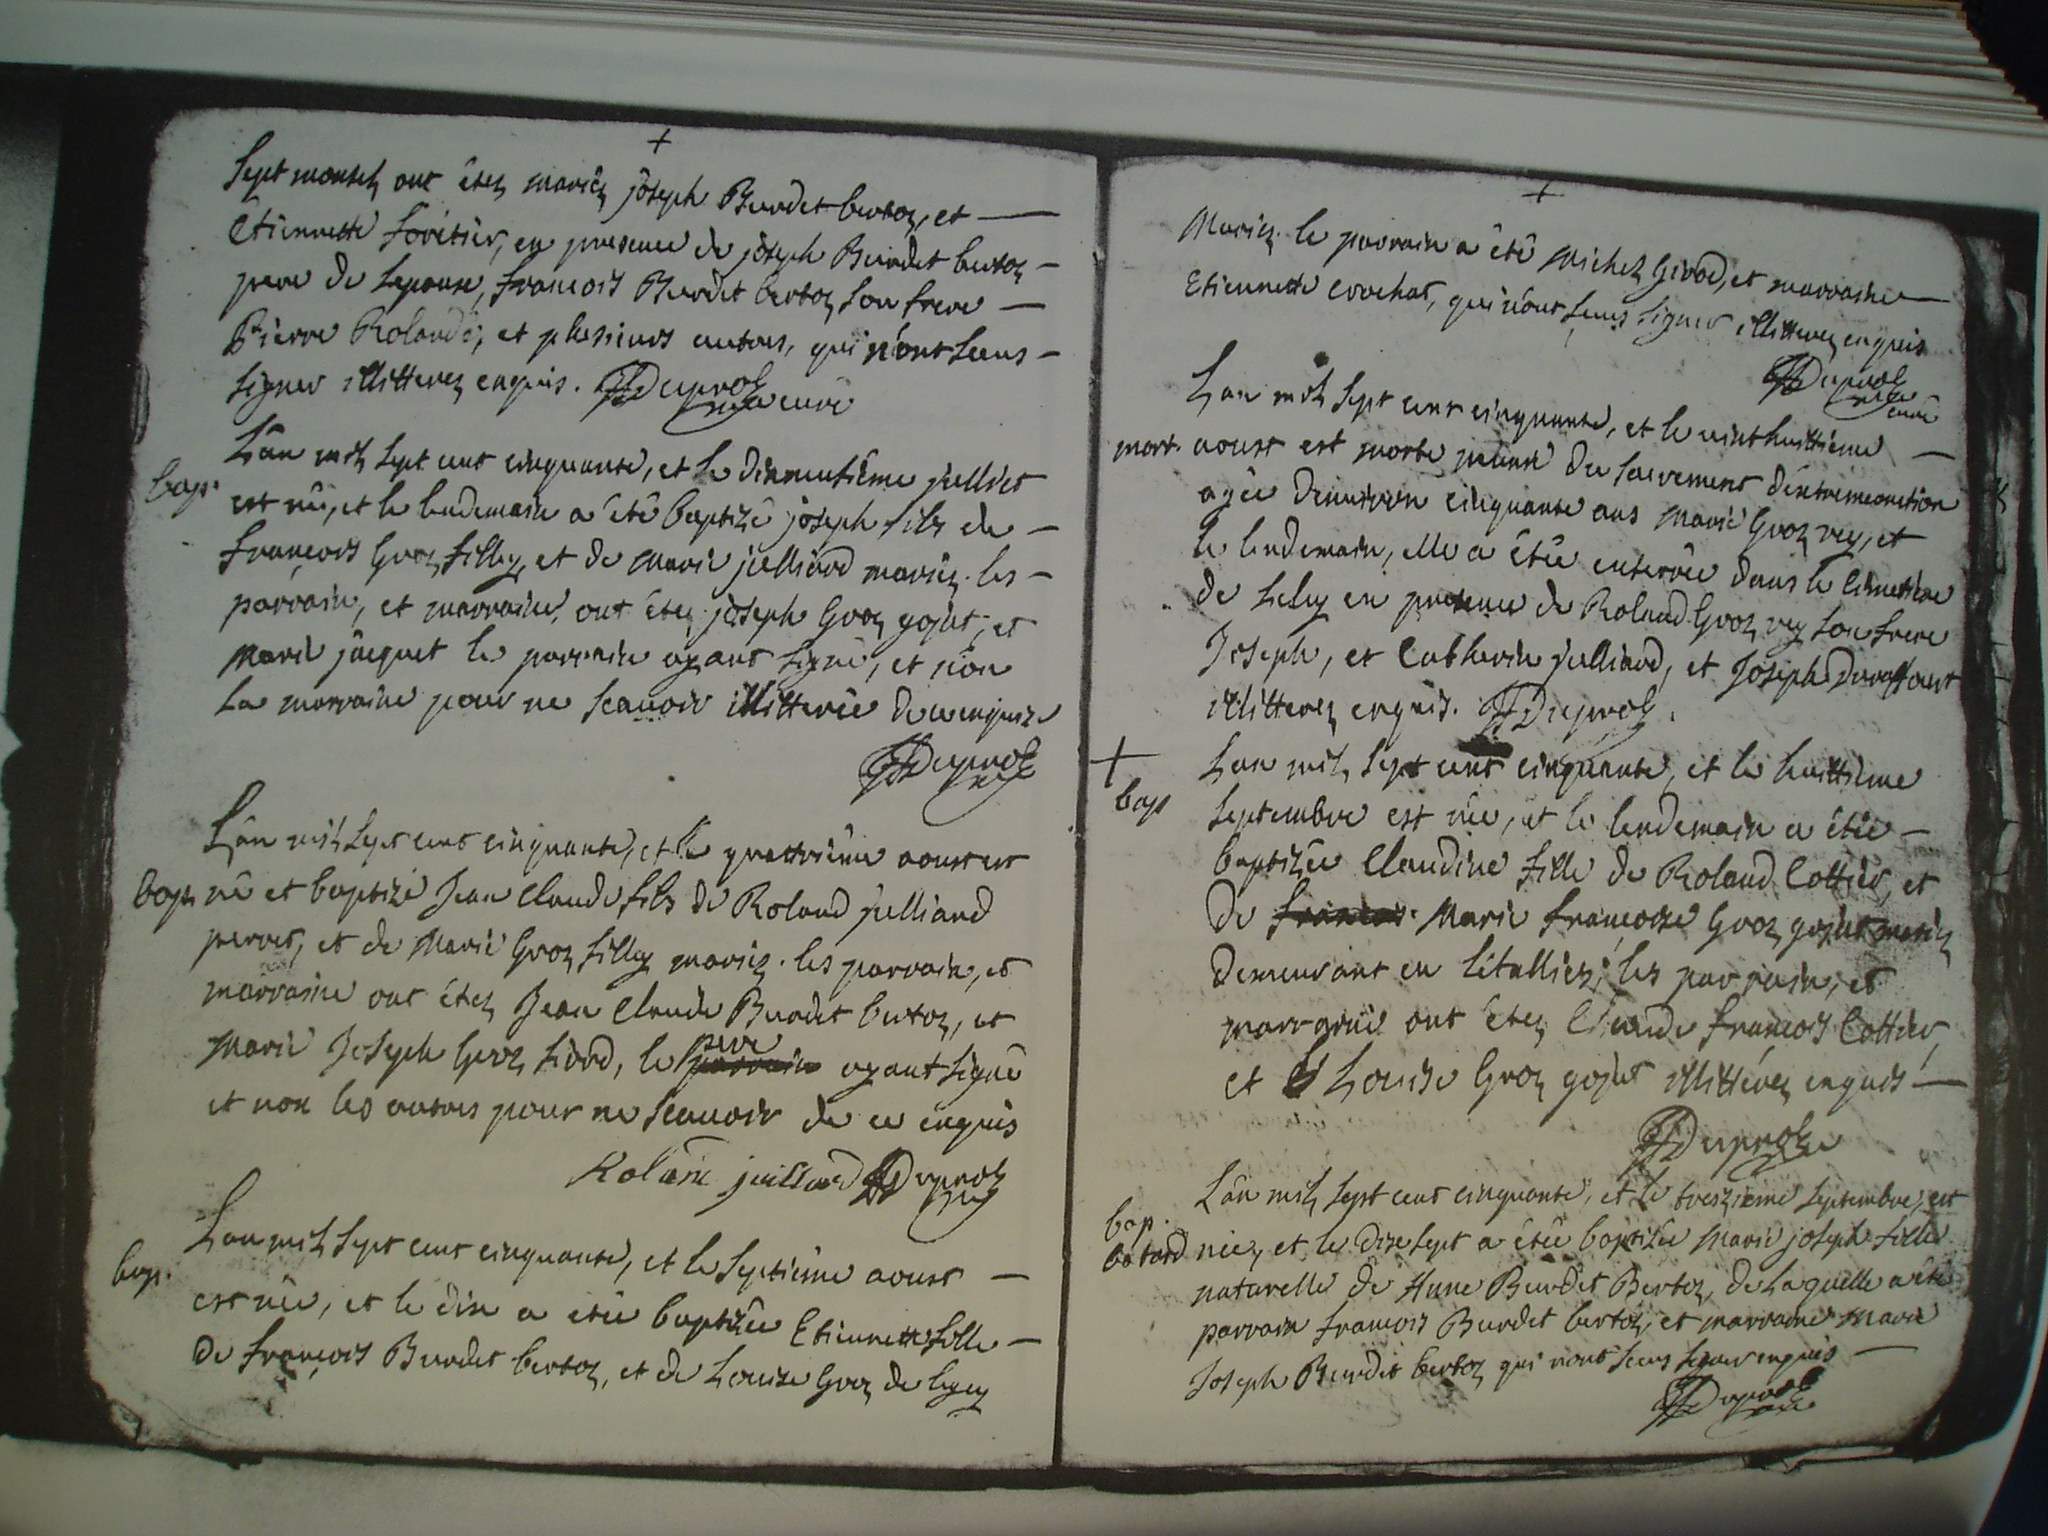 +
Sept moutet ont êtez mariéz joseph Burdet bertoz, et
Etiennette forétier, en presence de joseph Burdet bertoz
pere de lepouse, françois Burdet bertoz son frere
Pierre Roland, et plusieurs autres, qui n'ont sceus
signer illitterez enquis. Duproz curé
bap. L'ân mil sept cent cinquante, et le dixneufième julliet
est né, et le lendemain a été baptizé joseph fils de
françois Groz filley, et de Marie julliard mariez. les
parrain, et marraine, ont êtez joseph Groz gojat, et
Marie jacquet le parrain ayant signé, et non
La marraine pour ne scauoir illitterée de ce enquise
Duproz
L'ân mil sept cent cinquante, et le quattrième aoust est
bap. né et baptizé Jean Claude fils de Roland julliard
perret, et de Marie Groz filley mariez. les parrain, et
marraine ont êtez Jean Claude Burdet bertoz, et
Marie Joseph Groz fiord, le pere ayant signé
et non les autres pour ne scauoir de ce enquis
Roland juilliard Duproz
L'an mil sept cent cinquante, et le septième aoust
bap. est née, et le dix a étée baptizée Etiennette fille
de françois Burdet bertoz, et de Louise Groz de legey
+
Mariez. le parrain a été Michel Girod, et marraine
Etiennette crochat, qui n'ont sceus signer illitterez enquis
Duproz curé
L'an mil sept cent cinquante, et le vinthuittième
mort. aoust est morte munie du sacrement d'extremeonction
agée denuiron cinquante ans Marie Groz rey, et
le lendemain, elle a étée enterrée dans le cimetiere
de Lelex en presence de Roland Groz rey son frere
Joseph, et Catherin julliard, et Joseph Duraffourt
illitterez enquis. Duproz.
+
L'an mil sept cent cinquante, et le huittième
bap septembre est née, et le lendemain a étée
baptizée Claudine fille de Roland Cottier, et
De françoise Marie françoise Groz gojat mariez
Demeurant en litallier; les parrain, et
marraine ont êtez Claude françois Cottier
et Louise Groz gojat illittérez enquis
Duproz
L'ân mil sept cent cinquante, et le treizieme septembre, est
bap.
batard née, et le dixsept a étée baptizée Marie joseph fille
naturelle de Anne Burdet Bertoz, de laquelle a été
parrain françois Burdet bertoz, et marraine Marie
Joseph Burdet bertoz qui nont sceus signer enquis
Duproz